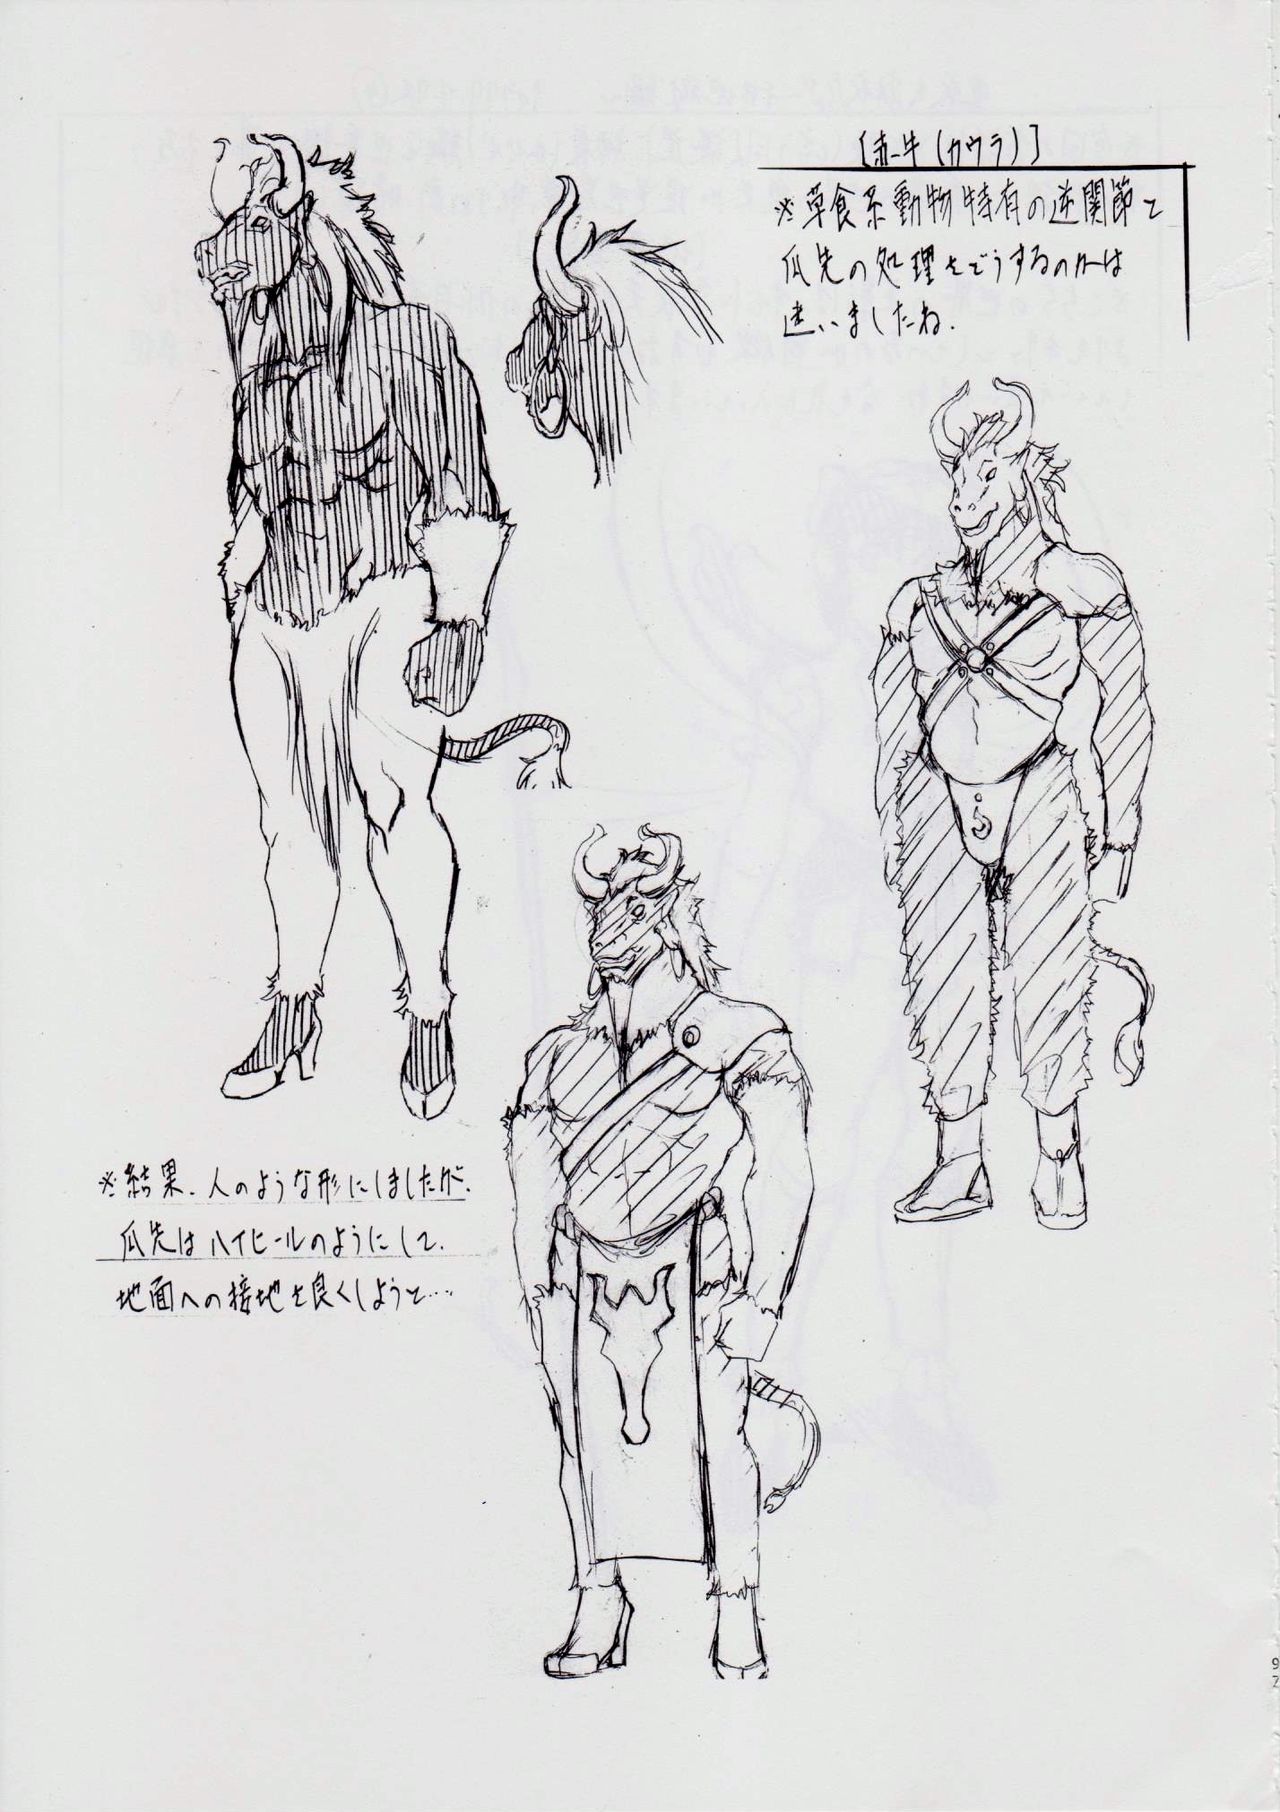 [赤牛(カウラ)]
※草食系動物特有の逆関節と
爪先の処理をどうするのかは
迷いましたね.
※結果、人のような形にしましたが、
爪先はハイヒールのようにして、
地面への接地を良くしようと…